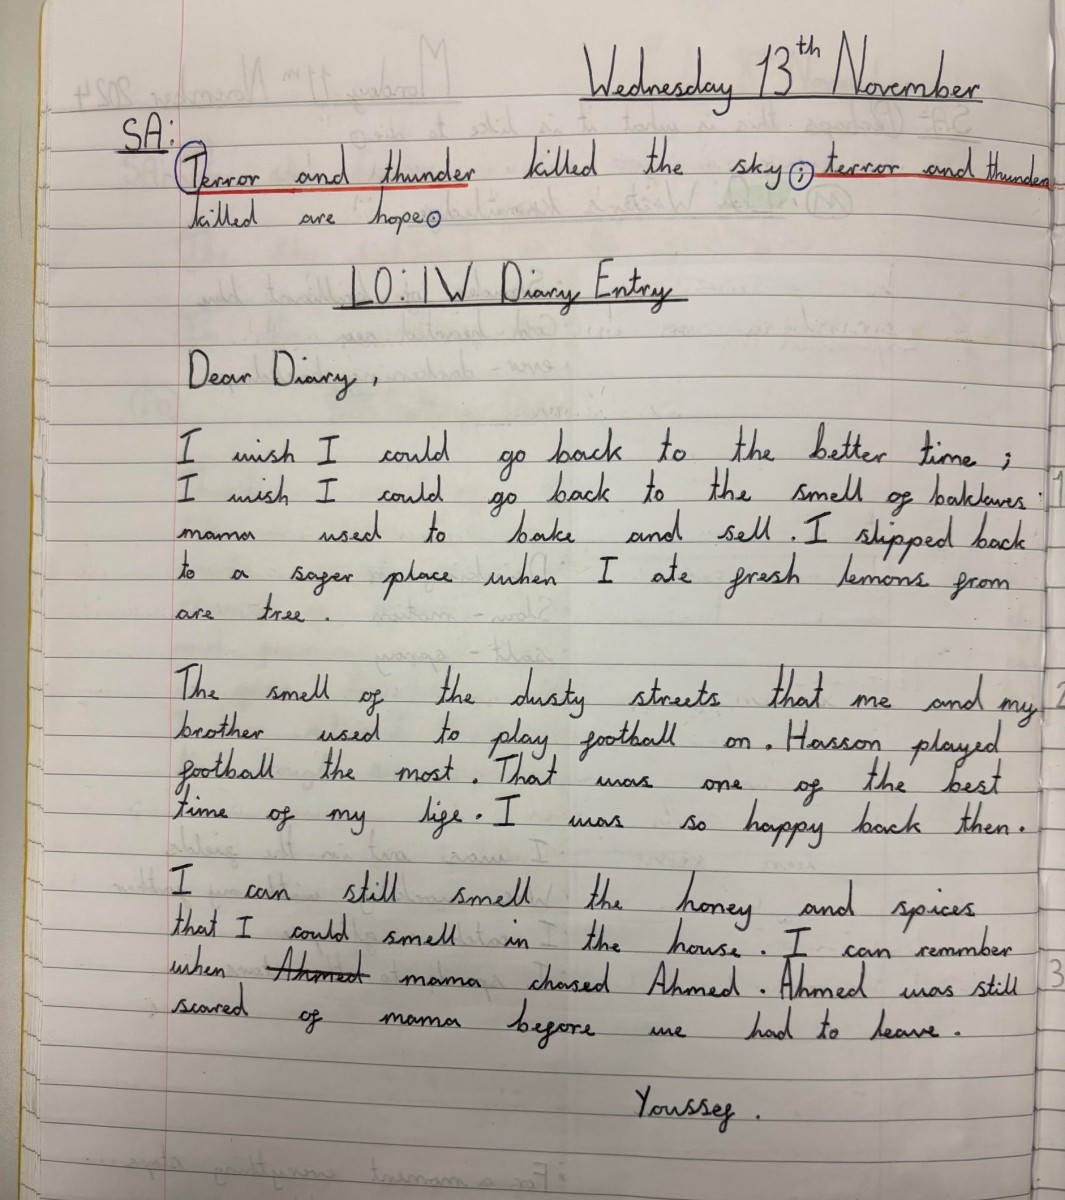 Wednesday 13th November
SA:
Terror and thunder killed the sky; terror and thunder
killed are hope.
LO: IW Diary Entry
Dear Diary,
I wish I could go back to the better time;
I wish I could go back to the smell of baklaves
mama used to bake and sell. I slipped back
to a safer place when I ate fresh lemons from
are tree.
The smell of the dusty streets that me and my
brother used to play football on. Hasson played
football the most. That was one of the best
time of my life. I was so happy back then.
I can still smell the honey and spices
that I could smell in the house. I can remmber
when Ahmed mama chased Ahmed. Ahmed was still
scared of mama before we had to leave.
Youssef.
1
2
3